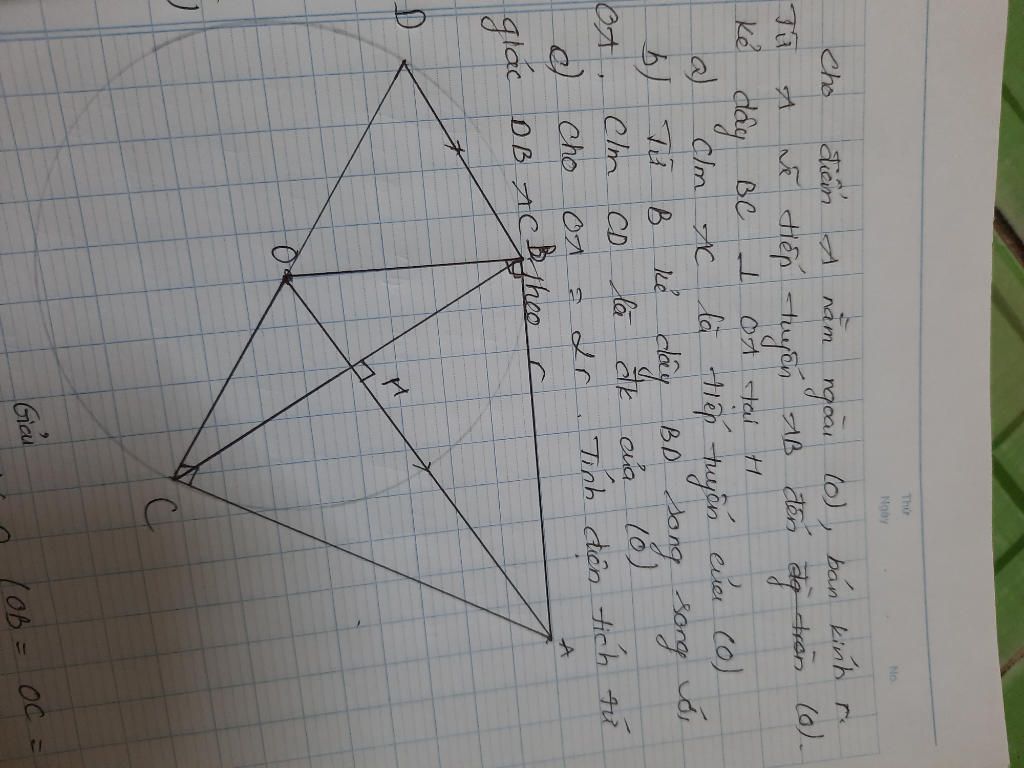 Thứ
Ngày
No.
Cho điểm A nằm ngoài (O), bán kính r.
Từ A vẽ tiếp tuyến AB đến (O).
Kẻ dây BC ⊥ OA tại H
a) C/m AC là tiếp tuyến của (O)
b) Từ B kẻ dây BD song song với
OA, C/m CD là đk của (O)
c) Cho OA = 2r. Tính diện tích tứ
giác DBAC theo r
D
B
O
H
A
C
Giải
(OB = OC =